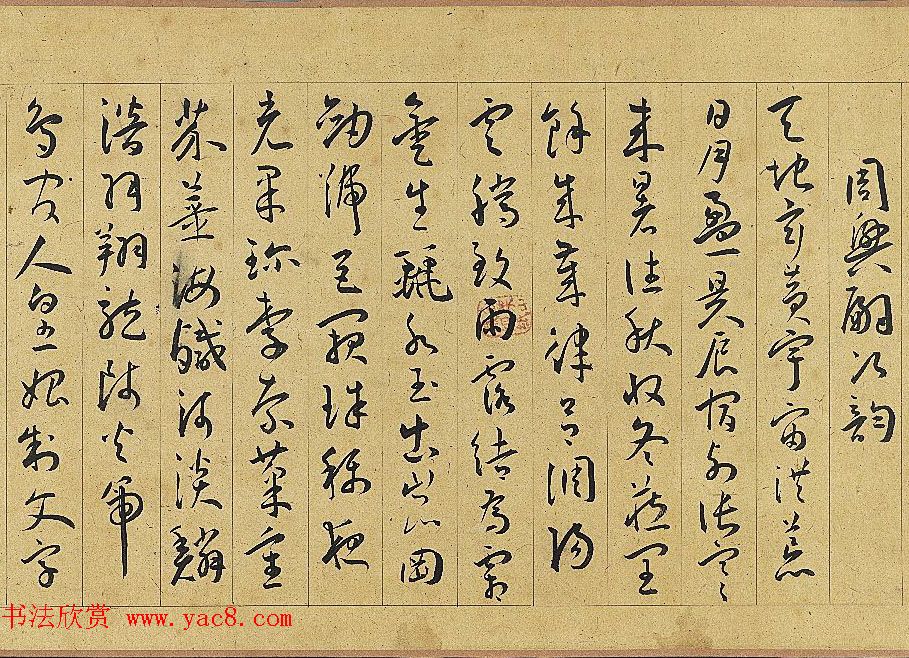 周興嗣次韵
天地玄黄宇宙洪荒
日月盈昃辰宿列張寒
来暑往秋收冬藏閏
餘成歲律吕調陽
雲騰致雨露結為霜
金生麗水玉出崑岡
劒號巨闕珠稱夜
光果珍李柰菜重
芥薑海鹹河淡鱗
潜羽翔龍師火帝
鳥官人皇始制文字
书法欣赏 www.yac8.com